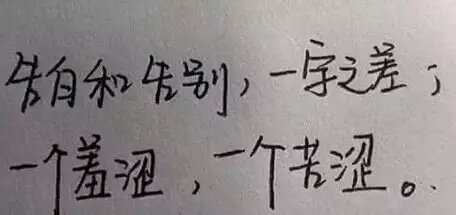 告白和告别，一字之差；
一个羞涩，一个苦涩。